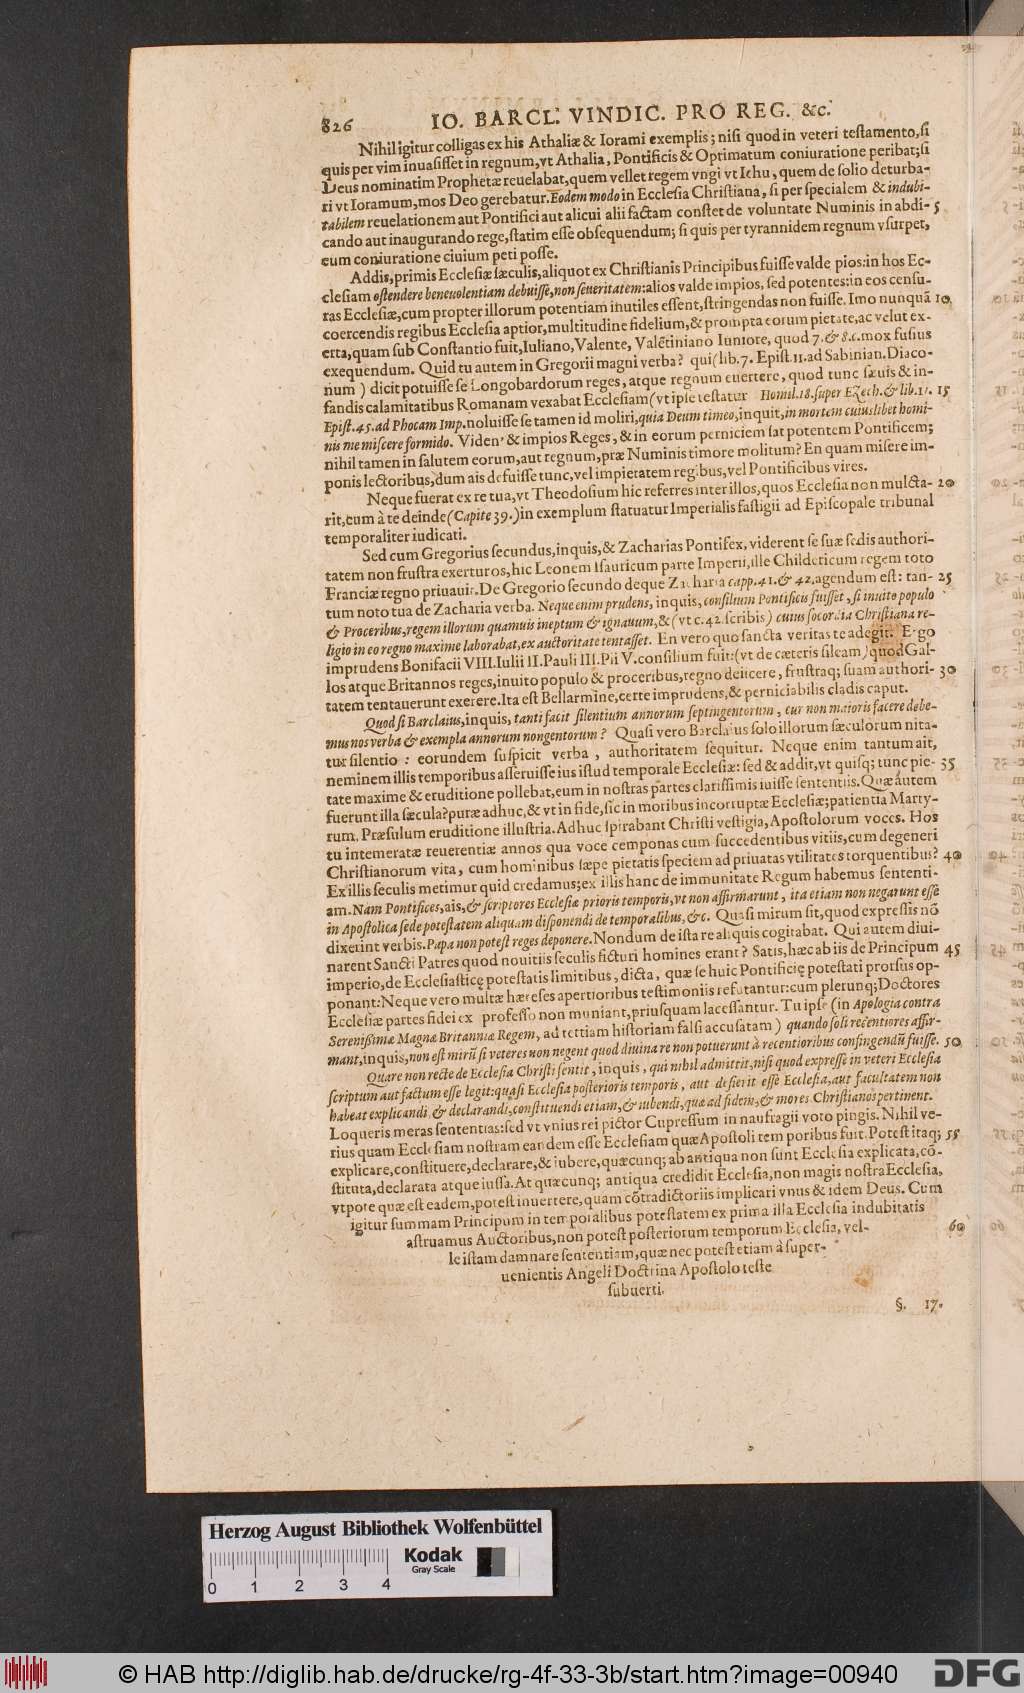 826 IO. BARCL. VINDIC. PRO REG. &c.
Nihil igitur colligas ex his Athaliæ & Iorami exemplis; nisi quod in veteri testamento, si
quis per vim inuasisset in regnum, vt Athalia, Pontificis & Optimatum coniuratione peribat; si
Deus nominatim Prophetæ reuelabat, quem vellet regem vngi vt Iehu, quem de solio deturba-
ri vt Ioramum, mos Deo gerebatur. Eodem modo in Ecclesia Christiana, si per specialem & indubi-
tabilem reuelationem aut Pontifici aut alicui alii factam constet de voluntate Numinis in abdi- 5
cando aut inaugurando rege, statim esse obsequendum; si quis per tyrannidem regnum vsurpet,
eum coniuratione ciuium peti posse.
Addis, primis Ecclesiæ sæculis, aliquot ex Christianis Principibus fuisse valde pios: in hos Ec-
clesiam ostendere beneuolentiam debuisse, non seueritatem: alios valde impios, sed potentes: in eos censu-
ras Ecclesiæ, cum propter illorum potentiam inutiles essent, stringendas non fuisse. Imo nunquā 10
coercendis regibus Ecclesia aptior, multitudine fidelium, & prompta eorum pietate, ac velut ex-
erta, quam sub Constantio fuit, Iuliano, Valente, Valētiniano Iuniore, quod 7. & 8. c. mox fusius
exequendum. Quid tu autem in Gregorii magni verba? qui (lib. 7. Epist. 11. ad Sabinian. Diaco-
num) dicit potuisse se Longobardorum reges, atque regnum euertere, quod tunc sæuis & in-
fandis calamitatibus Romanam vexabat Ecclesiam (vt ipse testatur Homil. 18. super Ezech. & lib. 11. 15
Epist. 45. ad Phocam Imp. noluisse se tamen id moliri, quia Deum timeo, inquit, in mortem cuiuslibet homi-
nis me miscere formido. Viden' & impios Reges, & in eorum perniciem sat potentem Pontificem;
nihil tamen in salutem eorum, aut regnum, præ Numinis timore molitum? En quam misere im-
ponis lectoribus, dum ais defuisse tunc, vel impietatem regibus, vel Pontificibus vires.
Neque fuerat ex re tua, vt Theodosium hic referres inter illos, quos Ecclesia non mulcta- 20
rit, cum à te deinde (Capite 39.) in exemplum statuatur Imperialis fastigii ad Episcopale tribunal
temporaliter iudicati.
Sed cum Gregorius secundus, inquis, & Zacharias Pontifex, viderent se suæ sedis authori-
tatem non frustra exerturos, hic Leonem Isauticum parte Imperii, ille Childericum regem toto
Franciæ regno priuauit. De Gregorio secundo deque Zacharia capp. 41. & 42. agendum est: tan- 25
tum noto tua de Zacharia verba. Neque enim prudens, inquis, consilium Pontificis fuisset, si inuito populo
& Proceribus, regem illorum quamuis ineptum & ignauum, & (vt c. 42. scribis) cuius socordia Christiana re-
ligio in eo regno maxime laborabat, ex auctoritate tentasset. En vero quo sancta veritas te adegit. Ergo
imprudens Bonifacii VIII. Iulii II. Pauli III. Pii V. consilium fuit: (vt de cæteris sileam) quod Gal-
los atque Britannos reges, inuito populo & proceribus, regno deiicere, frustraq; suam authori- 30
tatem tentauerunt exerere. Ita est Bellarmine, certe imprudens, & perniciabilis cladis caput.
Quod si Barclaius, inquis, tanti facit silentium annorum septingentorum, cur non maioris facere debe-
mus nos verba & exempla annorum nongentorum? Quasi vero Barclaius solo illorum sæculorum nita-
tur silentio: eorundem suspicit verba, authoritatem sequitur. Neque enim tantum ait,
neminem illis temporibus asseruisse ius istud temporale Ecclesiæ: sed & addit, vt quisq; tunc pie- 35
tate maxime & eruditione pollebat, eum in nostras partes clarissimis iuisse sententiis. Quæ autem
fuerunt illa sæcula? puræ adhuc, & vt in fide, sic in moribus incorruptæ Ecclesiæ; patientia Marty-
rum, Præsulum eruditione illustria. Adhuc spirabant Christi vestigia, Apostolorum voces. Hos
tu intemeratæ reuerentiæ annos qua voce componas cum succedentibus vitiis, cum degeneri
Christianorum vita, cum hominibus sæpe pietatis speciem ad priuatas vtilitates torquentibus? 40
Ex illis seculis metimur quid credamus; ex illis hanc de immunitate Regum habemus sententi-
am. Nam Pontifices, ais, & scriptores Ecclesiæ prioris temporis, vt non affirmarunt, ita etiam non negarunt esse
in Apostolica sede potestatem aliquam disponendi de temporalibus, &c. Quasi mirum sit, quod expressis nō
dixerint verbis. Papa non potest reges deponere. Nondum de ista re aliquis cogitabat. Qui autem diui-
narent Sancti Patres quod nouitiis seculis ficturi homines erant? Satis, hæc ab iis de Principum 45
imperio, de Ecclesiasticę potestatis limitibus, dicta, quæ se huic Pontificię potestati prorsus op-
ponant: Neque vero multæ hæreses apertioribus testimoniis refutantur: cum plerunq; Doctores
Ecclesiæ partes fidei ex professo non muniant, priusquam lacessantur. Tu ipse (in Apologia contra
Serenißimæ Magnæ Britanniæ Regem, ad tertiam historiam falsi accusatam) quando soli recentiores affir-
mant, inquis, non est mirū si veteres non negent quod diuina re non potuerunt à recentioribus confingendū fuisse. 50
Quare non recte de Ecclesia Christi sentit, inquis, qui nihil admittit, nisi quod expresse in veteri Ecclesia
scriptum aut factum esse legit: quasi Ecclesia posterioris temporis, aut desierit esse Ecclesia, aut facultatem non
habeat explicandi, & declarandi, constituendi etiam, & iubendi, quæ ad fidem, & mores Christianos pertinent.
Loqueris meras sententias: sed vt vnius rei pictor Cupressum in naufragii voto pingis. Nihil ve-
rius quam Ecclesiam nostram eandem esse Ecclesiam quæ Apostoli tem poribus fuit. Potest itaq; 55
explicare, constituere, declarare, & iubere, quæcunq; ab antiqua non sunt Ecclesia explicata, cō-
stituta, declarata atque iussa. At quæcunq; antiqua credidit Ecclesia, non magis nostra Ecclesia,
vtpote quæ est eadem, potest inuertere, quam cōtradictoriis implicari vnus & idem Deus. Cum
igitur summam Principum in temporalibus potestatem ex prima illa Ecclesia indubitatis
astruamus Auctoribus, non potest posteriorum temporum Ecclesia, vel- 60
le istam damnare sententiam, quæ nec potest etiam à super-
uenientis Angeli Doctrina Apostolo teste
subuerti.
§. 17.
Herzog August Bibliothek Wolfenbüttel
Kodak
Gray Scale
0 1 2 3 4
© HAB http://diglib.hab.de/drucke/rg-4f-33-3b/start.htm?image=00940
DFG